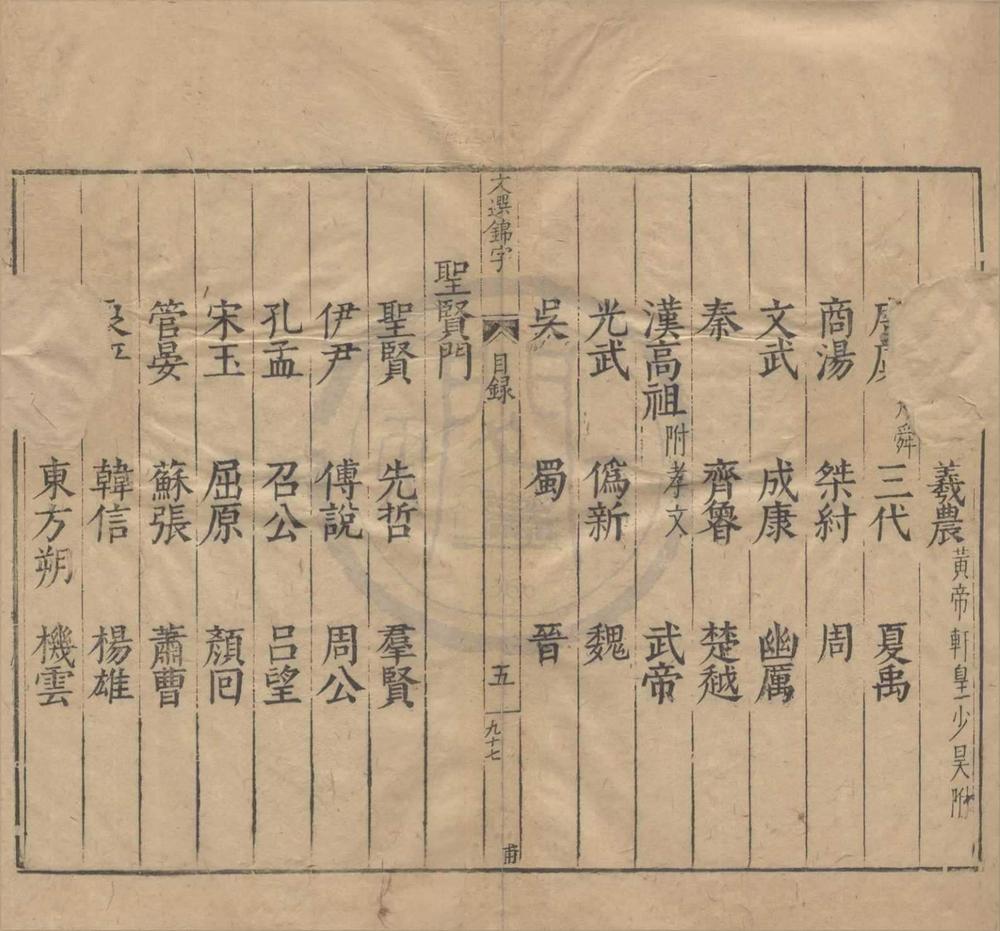 羲農 黃帝 軒皇 少昊附
舜 三代 夏禹
商湯 桀紂 周
文武 成康 幽厲
秦 齊魯 楚越
漢高祖 附孝文 武帝
光武 僞新 魏
吳 蜀 晉
文選錦字 目録 五 九十七 甫
聖賢門
聖賢 先哲 羣賢
伊尹 傅說 周公
孔孟 召公 吕望
宋玉 屈原 顏回
管晏 蘇張 蕭曹
韓信 楊雄
東方朔 機雲